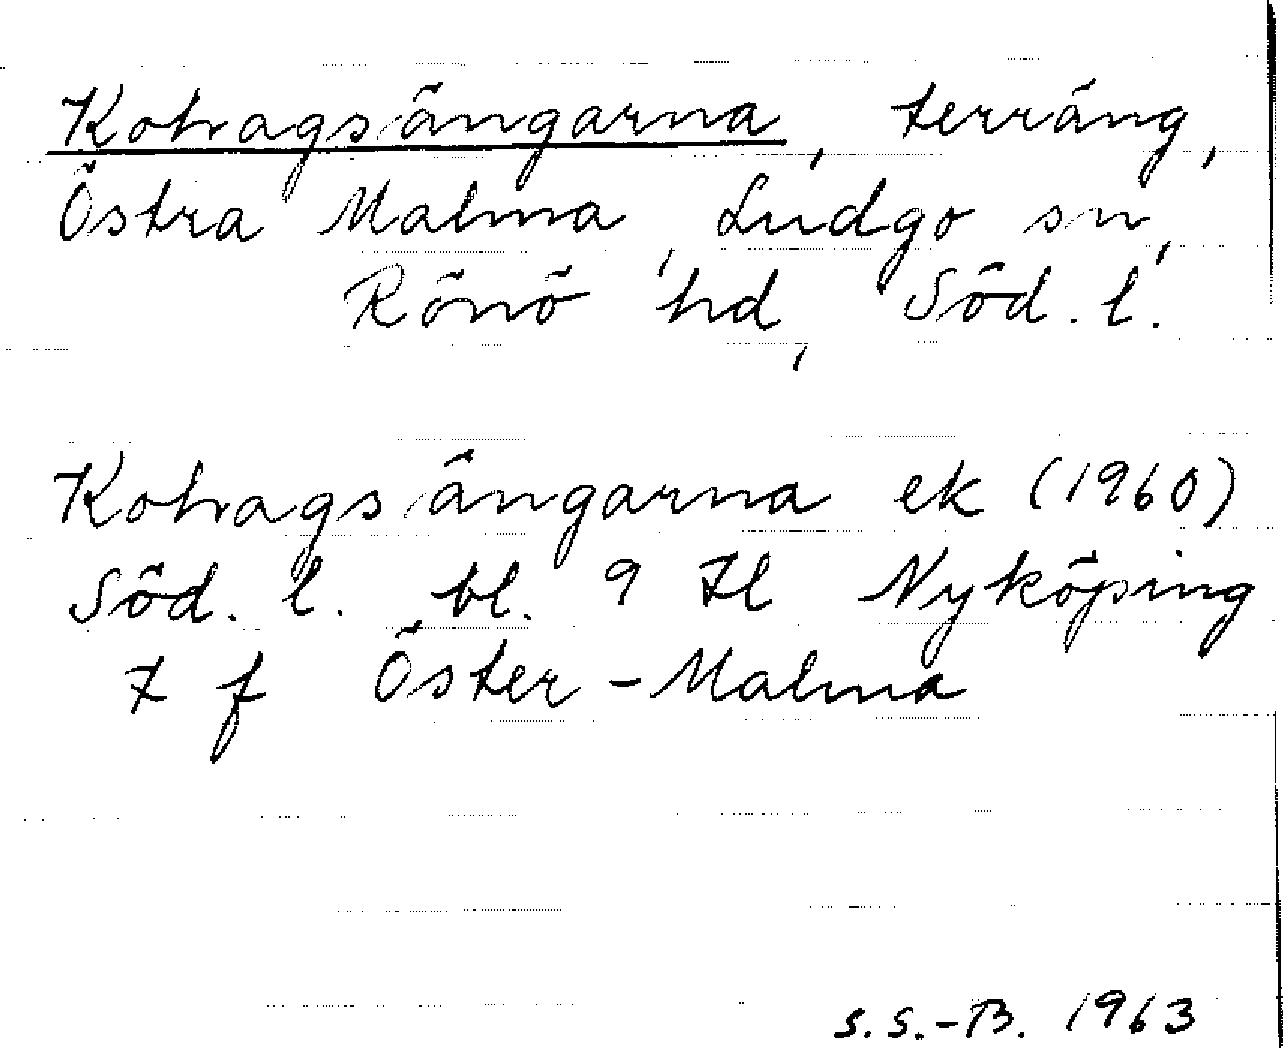 Kohagsängarna, terräng,
Östra Malma, Ludgo sn,
Rönö hd, Söd. l.
Kohagsängarna ek (1960)
Söd. l. bl. 9 Il Nyköping
7 f Öster-Malma
S.S.-B. 1963